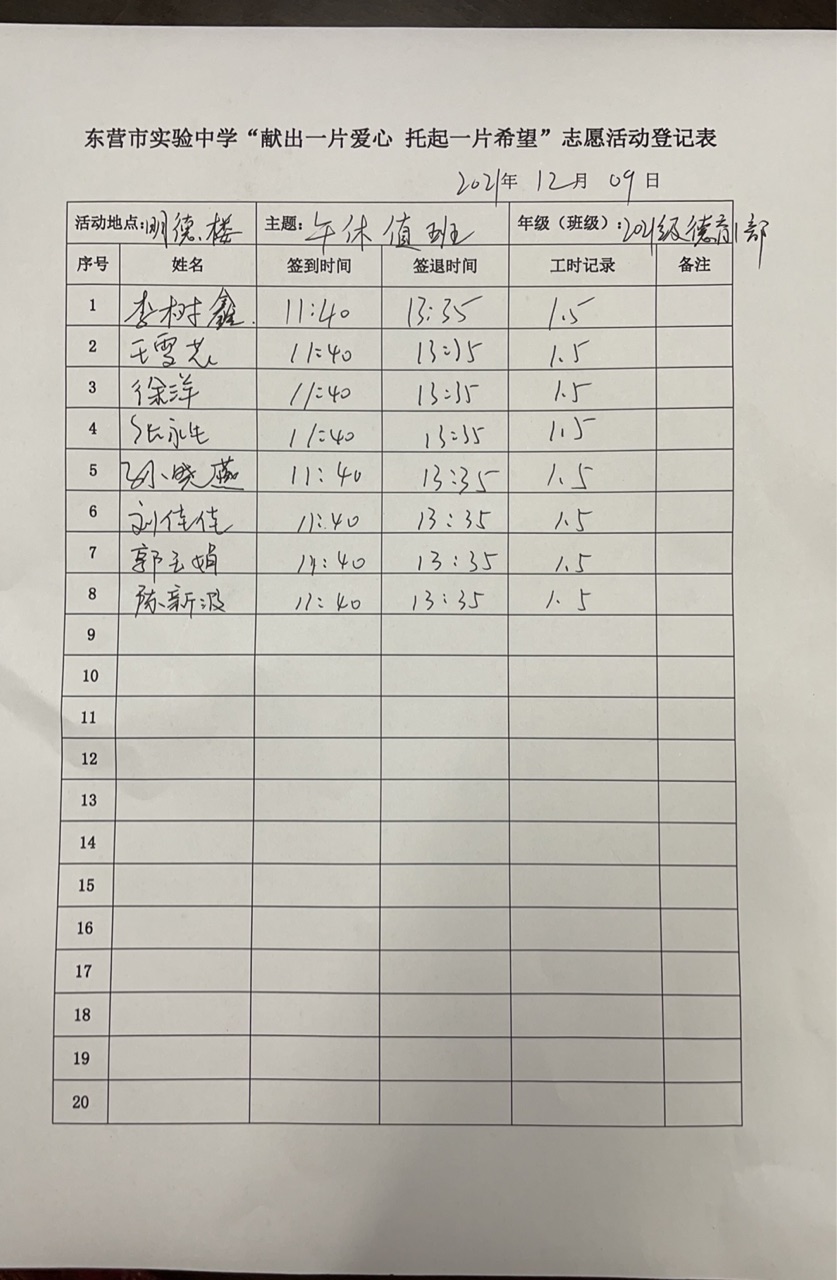 东营市实验中学“献出一片爱心 托起一片希望”志愿活动登记表
2021年 12月 09日
活动地点:明德楼 主题: 午休值班 年级（班级）: 2021级德育部
序号 姓名 签到时间 签退时间 工时记录 备注
1 李树鑫 11:40 13:35 1.5
2 王雪 11:40 13:35 1.5
3 徐洋 11:40 13:35 1.5
4 张永生 11:40 13:35 1.5
5 孙晓燕 11:40 13:35 1.5
6 刘佳佳 11:40 13:35 1.5
7 郭玉娟 11:40 13:35 1.5
8 陈新波 11:40 13:35 1.5
9
10
11
12
13
14
15
16
17
18
19
20